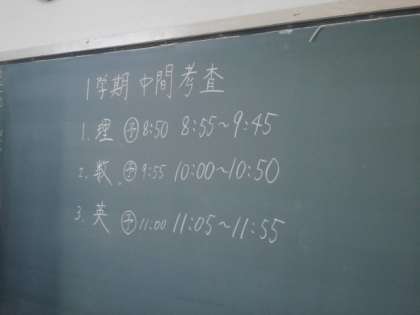 1学期 中間考査
1. 理 予 8:50 8:55～9:45
2. 数 予 9:55 10:00～10:50
3. 英 予 11:00 11:05～11:55